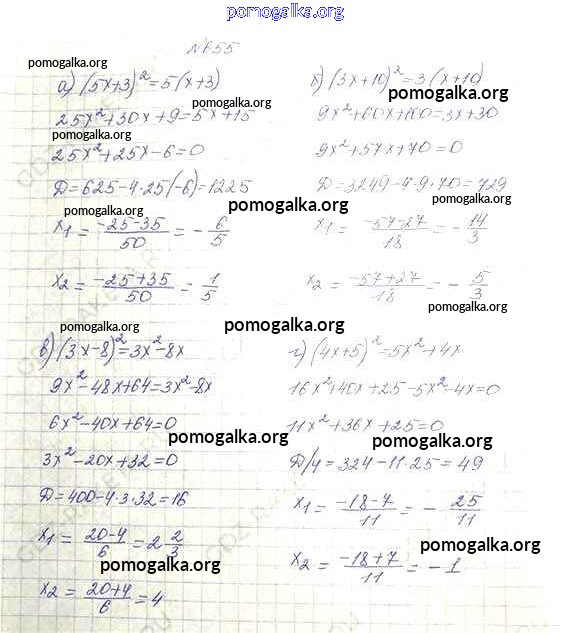 pomogalka.org
№655
pomogalka.org
pomogalka.org
а) (5x+3)²=5(x+3)
25x²+30x+9=5x+15
pomogalka.org
25x²+25x-6=0
Д=625-4·25(-6)=1225
x₁= -25-35/50 = -6/5
x₂= -25+35/50 = 1/5
pomogalka.org
б) (3x+10)²=3(x+10)
pomogalka.org
9x²+60x+100=3x+30
9x²+57x+70=0
Д=3249-4·9·70=729
pomogalka.org
pomogalka.org
x₁= -57-27/18 = -14/3
x₂= -57+27/18 = -5/3
pomogalka.org
pomogalka.org
pomogalka.org
в) (3x-8)²=3x²-8x
9x²-48x+64=3x²-8x
6x²-40x+64=0
pomogalka.org
3x²-20x+32=0
Д=400-4·3·32=16
x₁= 20-4/6 = 2 2/3
pomogalka.org
x₂= 20+4/6 = 4
г) (4x+5)²=5x²+4x
16x²+40x+25-5x²-4x=0
11x²+36x+25=0
pomogalka.org
Д/4=324-11·25=49
x₁= -18-7/11 = -25/11
pomogalka.org
x₂= -18+7/11 = -1